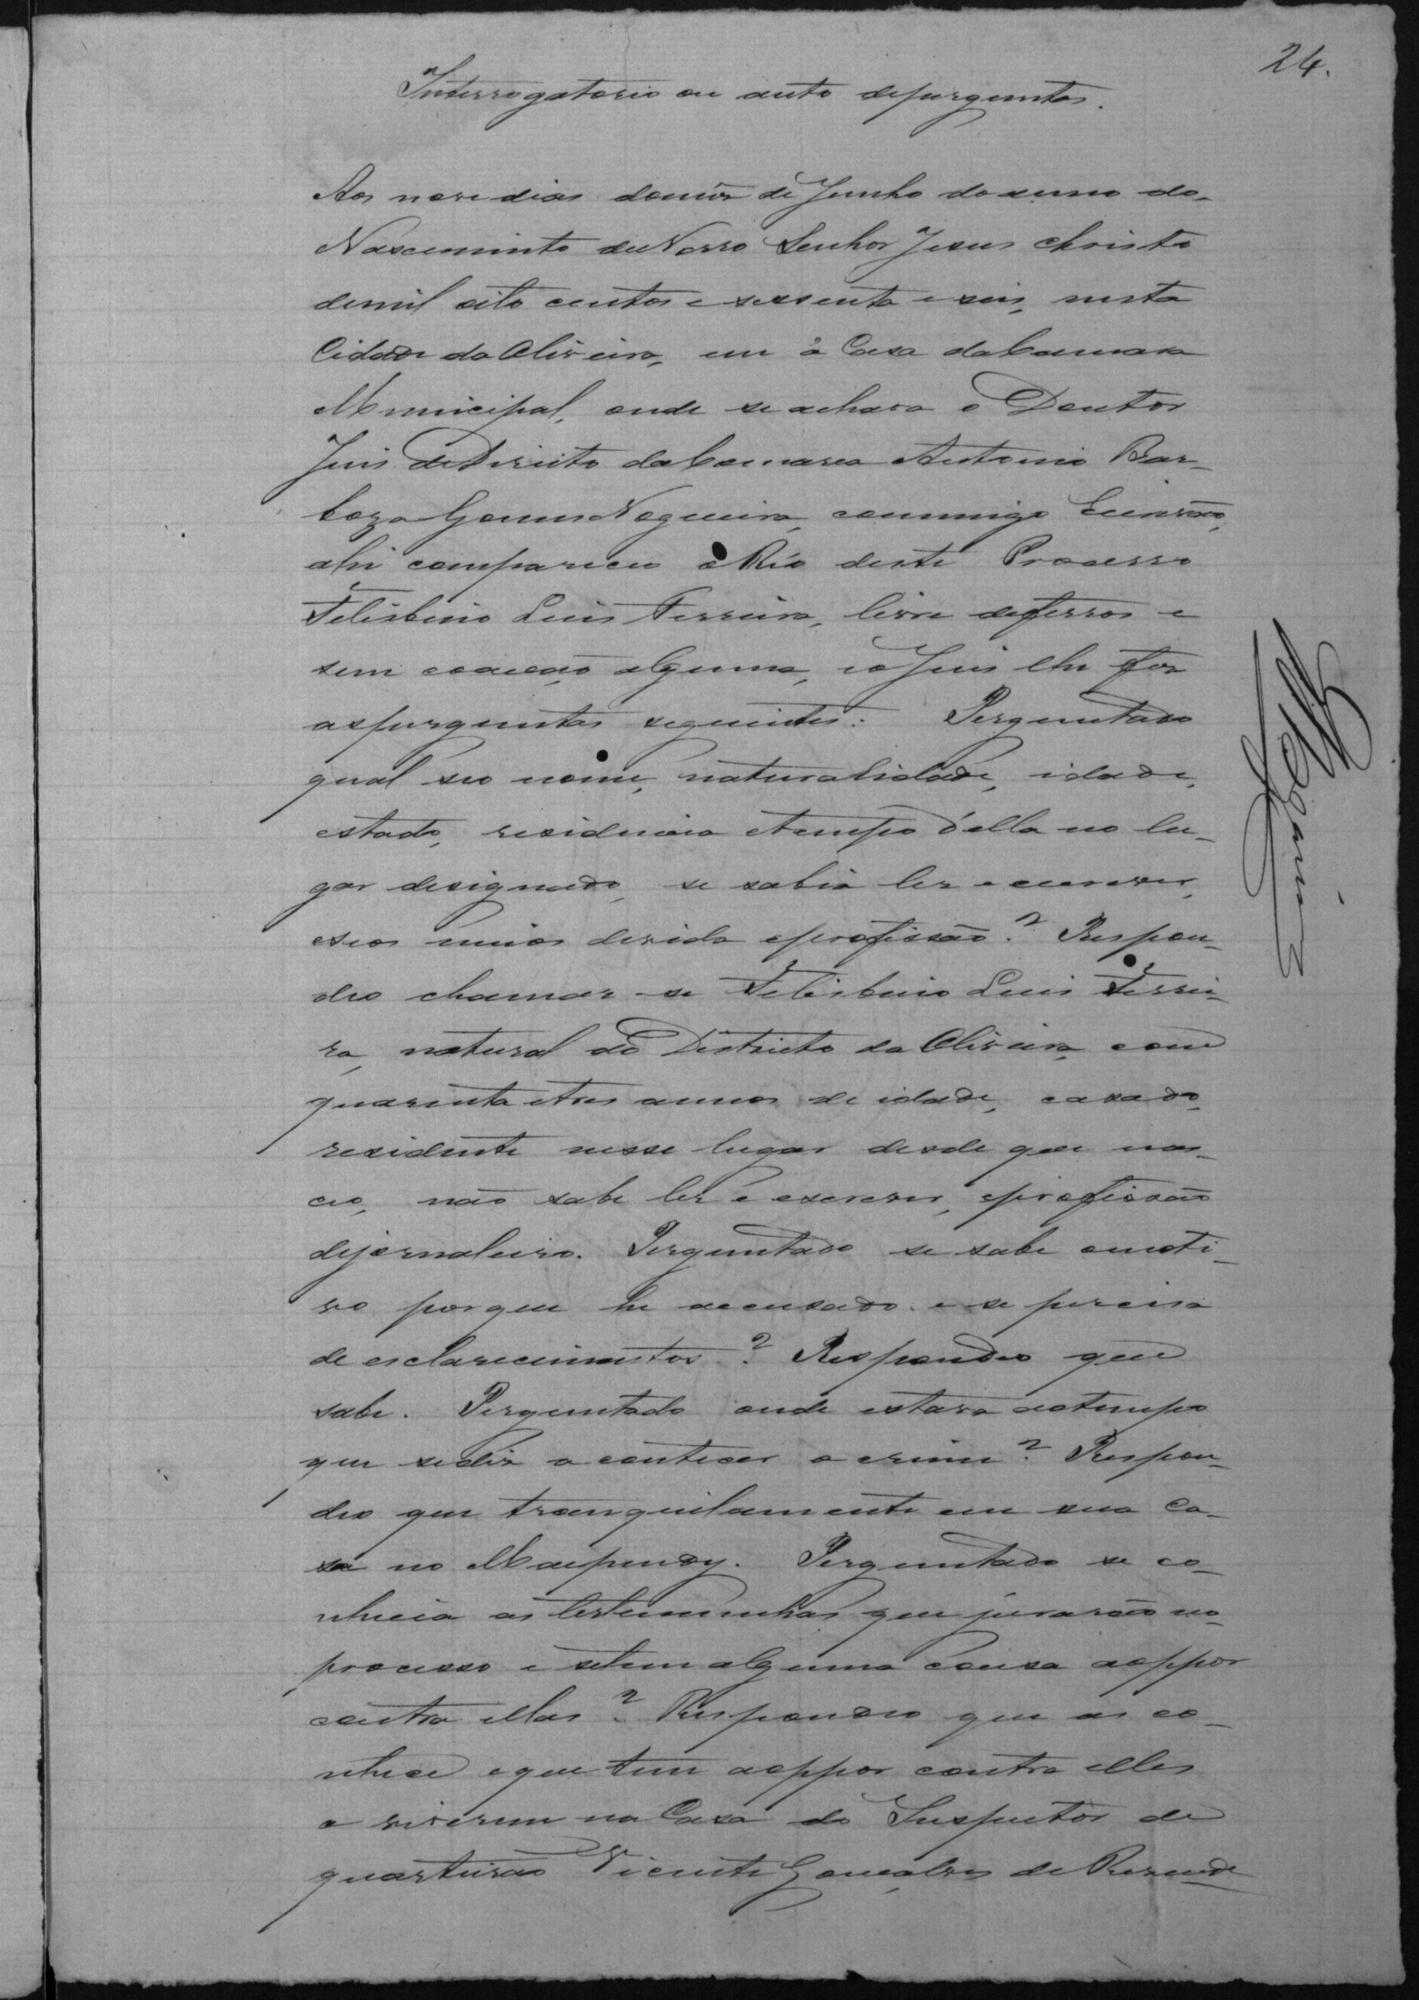 24.
Interrogatorio ou auto deperguntas.
Aos nove dias domêz de Junho do anno do
Nascimento deNosso Senhor Jesus Christo
demil oito centos e sessenta e seis, nesta
Cidade da Oliveira, em a Casa daCamara
Municipal, onde se achava o Doutor
Juis deDireito daComarca Antonio Bar-
boza Gomes Nogueira, commigo Escrivão,
ahi compareceo o Réo deste Processo
Felisbino Luis Ferreira, livre deferros e
sem coacção alguma, eo Juis lhe fes
asperguntas seguintes: Perguntado
qual seo nome, naturalidade, idade,
estado, residencia etempo d'ella no lu-
gar designado, se sabia ler e escrever,
eseos meios devida eprofissão? Respon-
deo chamar-se Felisbino Luis Ferrei-
ra, natural do Districto da Oliveira, com
quarenta etres annos de idade, casado,
residente nesse lugar desde que nas-
ceo, não sabe ler e escrever, eprofissão
dejornaleiro. Perguntado se sabe omoti-
vo porque he accusado e se percisa
de esclarecimentos? Respondeo que
sabe. Perguntado onde estava aotempo
que sediz acontecer o crime? Respon-
deo que tranquilamente em sua Ca-
sa no Maependy. Perguntado se co-
nhecia as testemunhas que jurarão no
processo e setem alguma cousa aoppor
contra ellas? Respondeo que as co-
nhece eque tem aoppor contra elles
o viverem na Casa do Inspector de
quarteirão Vicente Gonçalves de Rezende